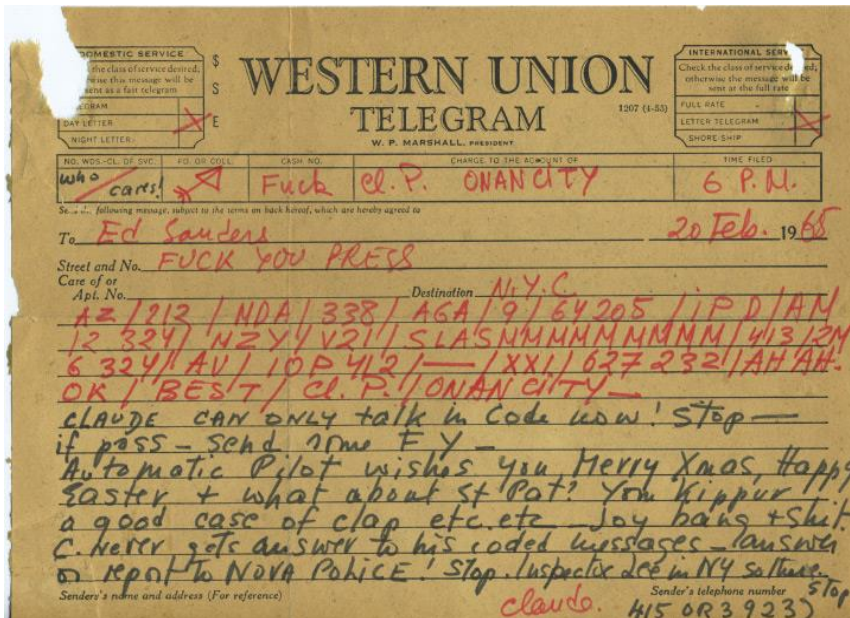 DOMESTIC SERVICE
the class of service desired;
otherwise this message will be
sent as a fast telegram
TELEGRAM
DAY LETTER X
NIGHT LETTER
$
S
E
WESTERN UNION
TELEGRAM
W. P. MARSHALL, PRESIDENT
1207 (4-55)
INTERNATIONAL SERV
Check the class of service desired;
otherwise the message will be
sent at the full rate
FULL RATE
LETTER TELEGRAM X
SHORE-SHIP
NO. WDS.-CL. OF SVC. PD. OR COLL. CASH NO. CHARGE TO THE ACCOUNT OF TIME FILED
who cares! Fuck Cl. P. ONAN CITY 6 P.M.
Send the following message, subject to the terms on back hereof, which are hereby agreed to
To Ed Sanders 20 Feb. 1965
Street and No. FUCK YOU PRESS
Care of or
Apt. No. Destination N.Y.C.
AZ/212/NDA/338/AGA/9/64205/iPD/AM
12 324/NZY/V21/SLASMMMMMMMMM/413/2M
6 324/AV/10P412/—/XXI/627232/AH AH.
OK/BEST/Cl. P./ONAN CITY—
CLAUDE CAN ONLY talk in Code now! Stop—
if poss — send some F Y —
Automatic Pilot wishes you Merry Xmas, Happy
Easter + what about St Pat? Yom Kippur
a good case of clap etc. etc — Joy bang + Shit.
C. Never gets answer to his coded messages — answer
or report to NOVA POLICE! Stop. Inspector Lee in NY so there.
Stop
Senders's name and address (For reference) Sender's telephone number
Claude. 415 OR3 923)